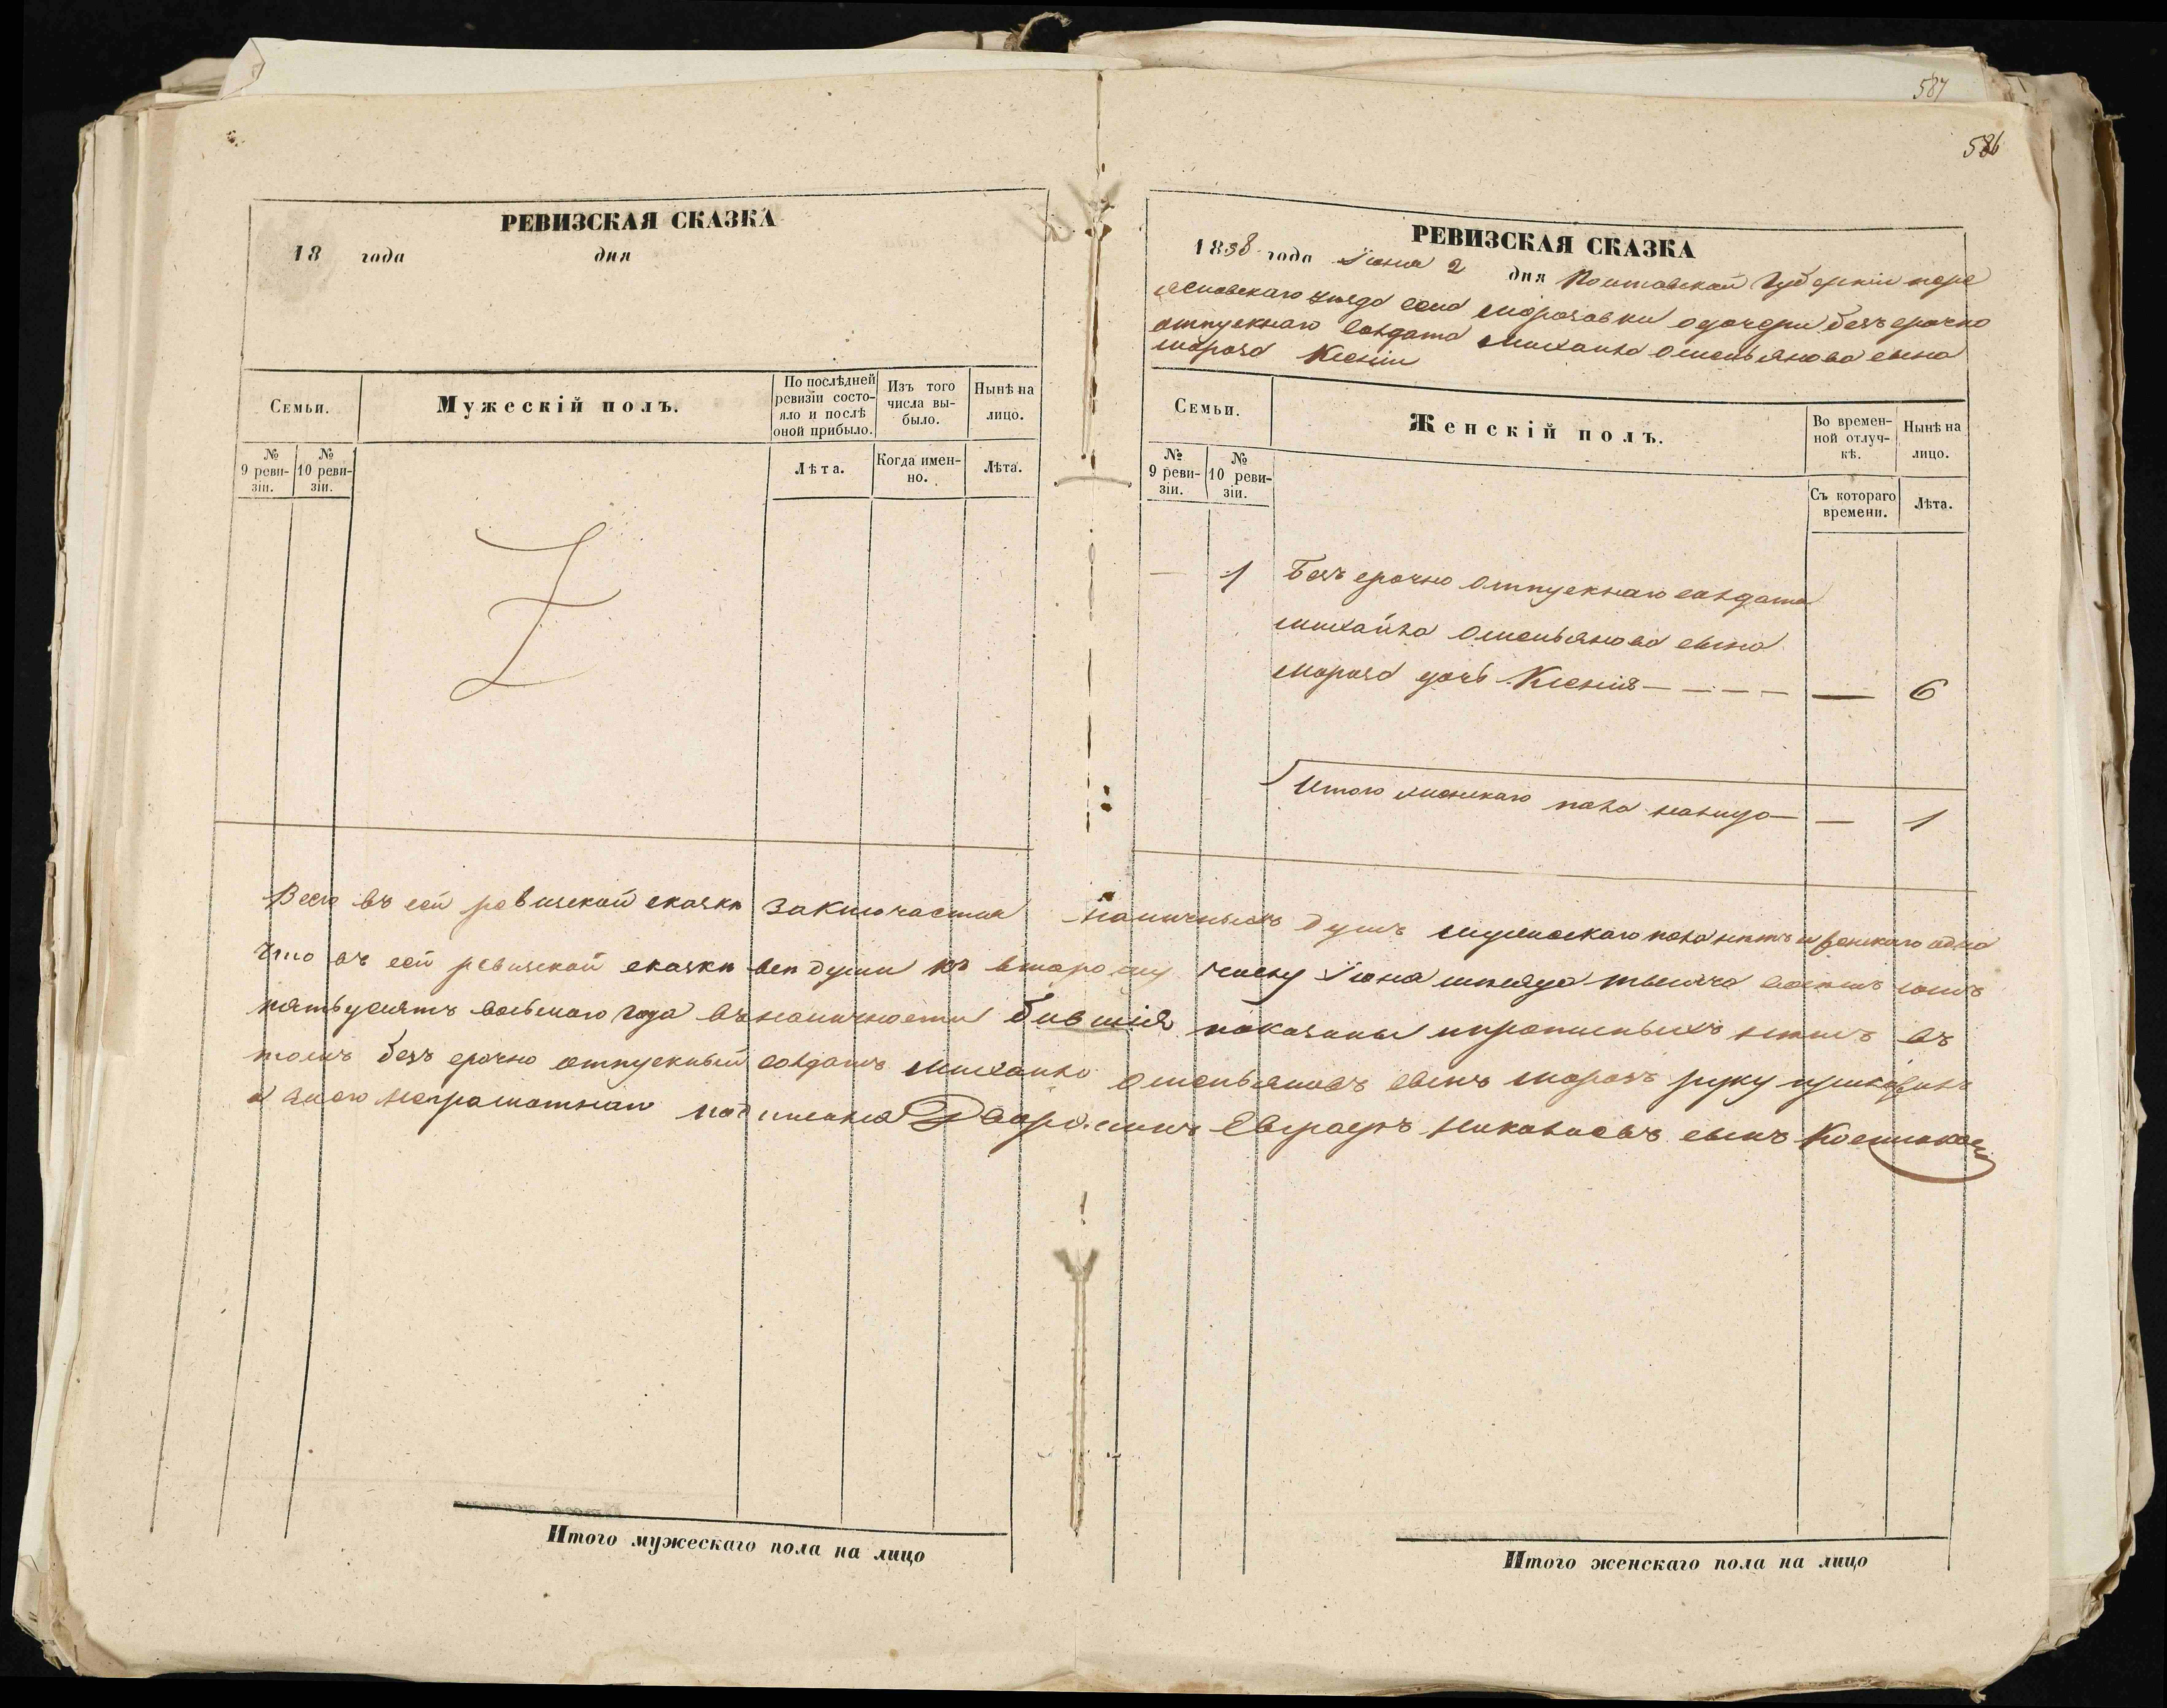 587
586
РЕВИЗСКАЯ СКАЗКА
18 года дня
Семьи.
Мужескій полъ.
По послѣдней ревизіи состо-
яло и послѣ
оной прибыло.
Изъ того
числа вы-
было.
Нынѣ на
лицо.
№
9 реви-
зіи.
№
10 реви-
зіи.
Лѣта.
Когда имен-
но.
Лѣта.
РЕВИЗСКАЯ СКАЗКА
1858 года Іюня 2 дня Полтавской Губерніи пере
яславскаго уезда села Морозовки о дочери безъ срочно
отпускнаго солдата Михайла Омельянова сына
Мороза Ксеніи
Семьи.
Женскій полъ.
Во времен-
ной отлуч-
кѣ.
Нынѣ на
лицо.
№
9 реви-
зіи.
№
10 реви-
зіи.
Съ котораго
времени.
Лѣта.
— 1 Безъ срочно отпускнаго солдата
Михайла Омельянова сына
Мороза дочь Ксенія — — — — — 6
Итого женскаго пола налицо — — 1
Всего въ сей ревизской сказки заключается наличныхъ душъ мужескаго пола нетъ и женскаго одна
Что въ сей ревизской сказки вси души къ второму числу Іюня месяца тысяча восемъ сотъ
пятьдесятъ восьмаго года въ наличности бившія показаны и прописныхъ нетъ въ
томъ безъ срочно отпускный солдатъ Михайло Омельяновъ сынъ Морозъ руку приложилъ
а вместо неграмотнаго подписался Дворянинъ Николаевъ сынъ
Итого мужескаго пола на лицо
Итого женскаго пола на лицо